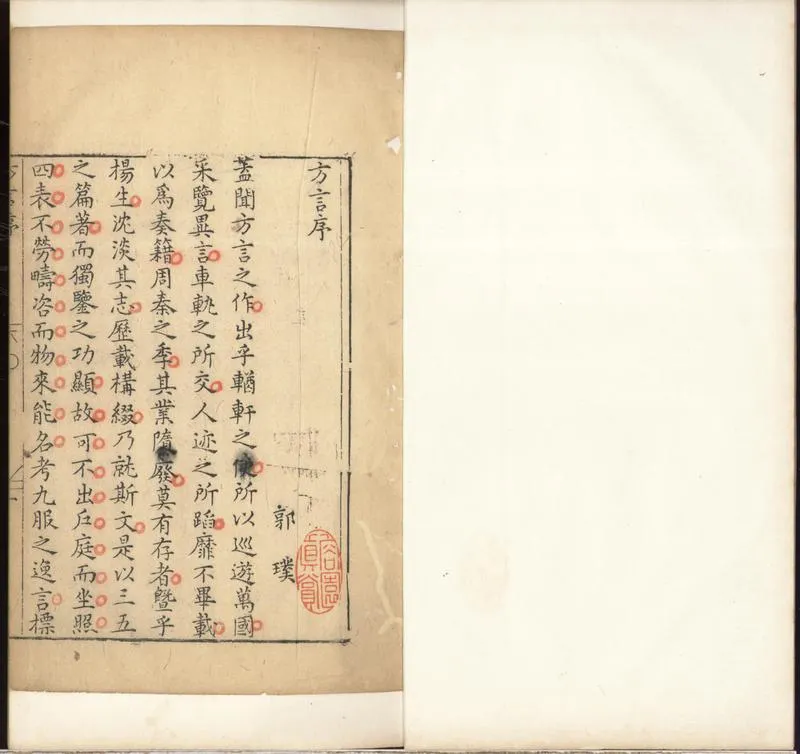 方言序
郭璞
蓋聞方言之作出乎輶軒之使所以巡遊萬國
采覽異言車軌之所交人迹之所蹈靡不畢載
以爲奏籍周秦之季其業隳廢莫有存者曁乎
楊生沈淡其志歷載構綴乃就斯文是以三五
之篇著而獨鑒之功顯故可不出戶庭而坐照
四表不勞疇咨而物來能名考九服之逸言標